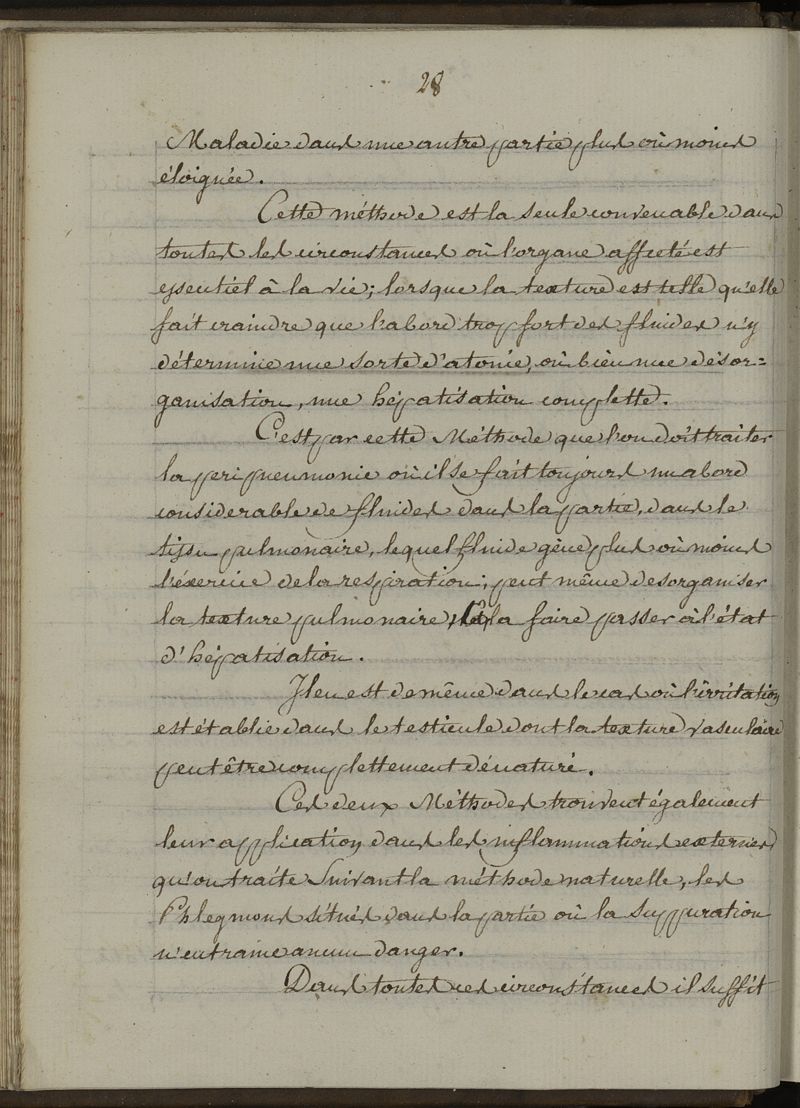 28
Maladie dans une autre partie plus où moins
éloignée.
Cette méthode est la seule convenable dans
toutes les circonstances où l'organe affecté est
essentiel à la vie; lorsque la texture est telle qu'elle
fait craindre que l'abord trop fort des fluides n'y
détermine une sorte d'atonie, où bien une désor=
ganisation, une hépatisation complette.
C'est par cette Méthode que l'on doit traiter
la peripneumonie où il se fait toujours un abord
considerable de fluides dans la partie, dans le
tissu pulmonaire, lequel fluide gène plus où moins
l'éxercice de la respiration; peut même desorganiser
la texture pulmonaire, la faire passer à l'état
d'hépatisation.
Il en est de même dans le cas où l'irritation
est établie dans le testicule dont la texture vasculaire
peut être complettement dénaturé.
Ces deux Méthodes trouvent également
leur application dans les inflammations externes
qu'on traite suivant la méthode naturelle, les
Phlegmons situés dans la partie où la suppuration
n'entraine aucun danger.
Dans toutes ces circonstances il suffit